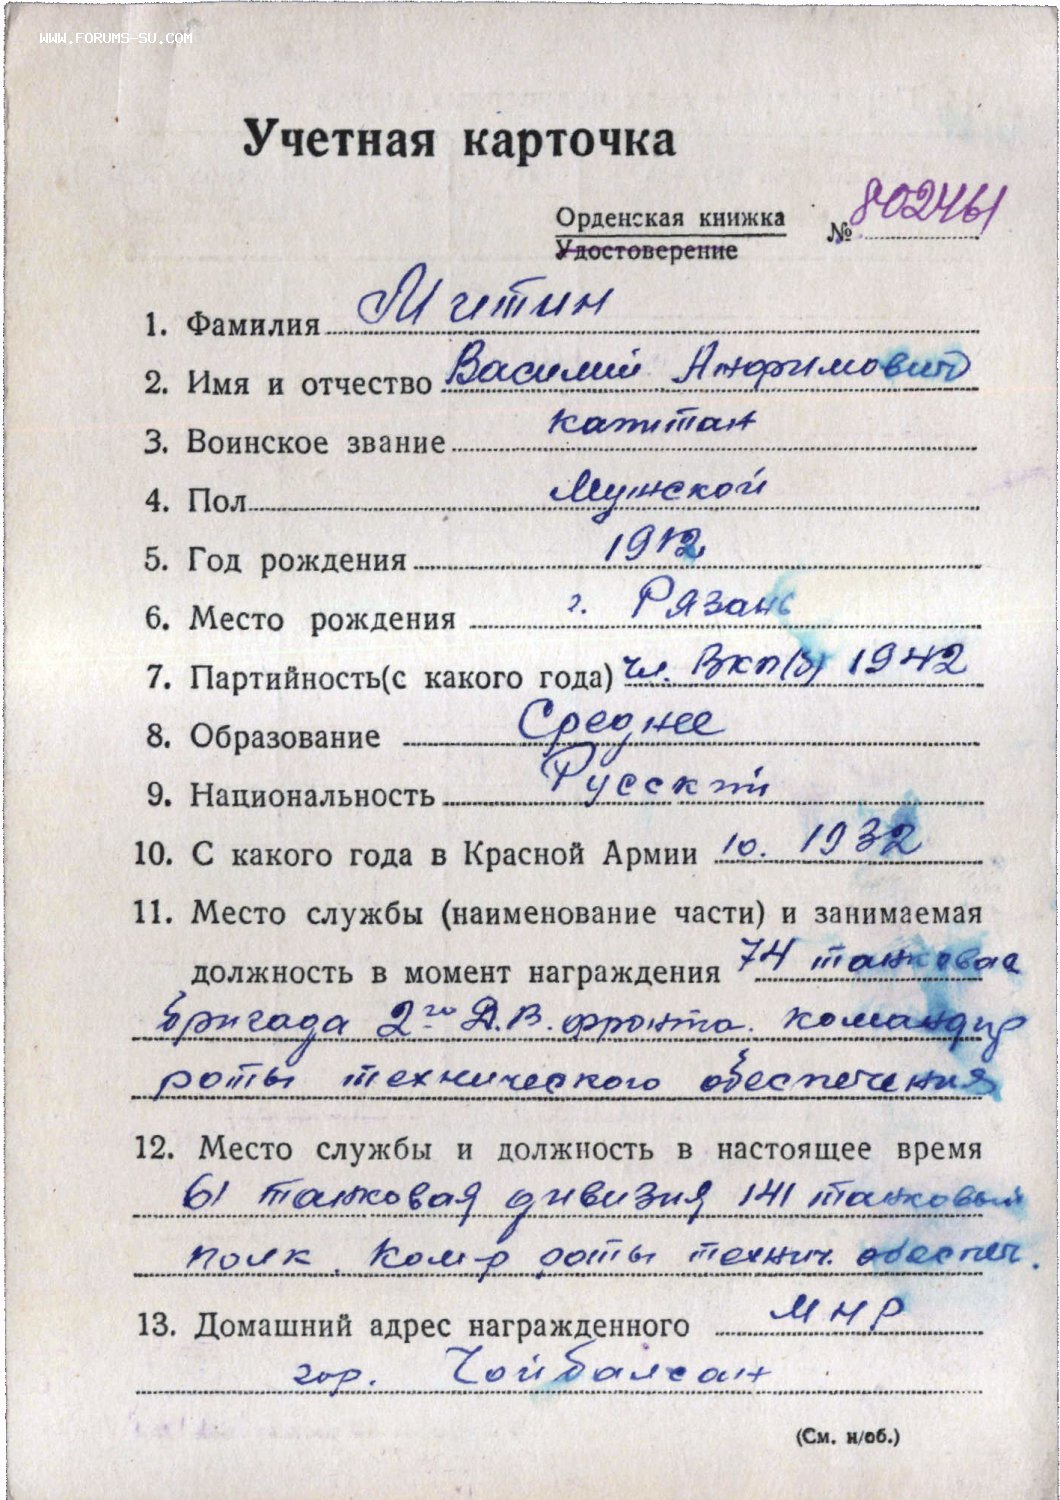 WWW.FORUMS-SU.COM
Учетная карточка
Орденская книжка
Удостоверение
№ 802461
1. Фамилия Митин
2. Имя и отчество Василий Анфимович
3. Воинское звание капитан
4. Пол Мужской
5. Год рождения 1912
6. Место рождения г. Рязань
7. Партийность(с какого года) чл. ВКП(б) 1942
8. Образование Среднее
9. Национальность Русский
10. С какого года в Красной Армии 10. 1932
11. Место службы (наименование части) и занимаемая
должность в момент награждения 74 танковая
бригада 2го Д.В. фронта. командир
роты технического обеспечения
12. Место службы и должность в настоящее время
61 танковая дивизия 141 танковый
полк. Ком-р роты технич. обеспеч.
13. Домашний адрес награжденного МНР
гор. Чойбалсан
(См. н/об.)